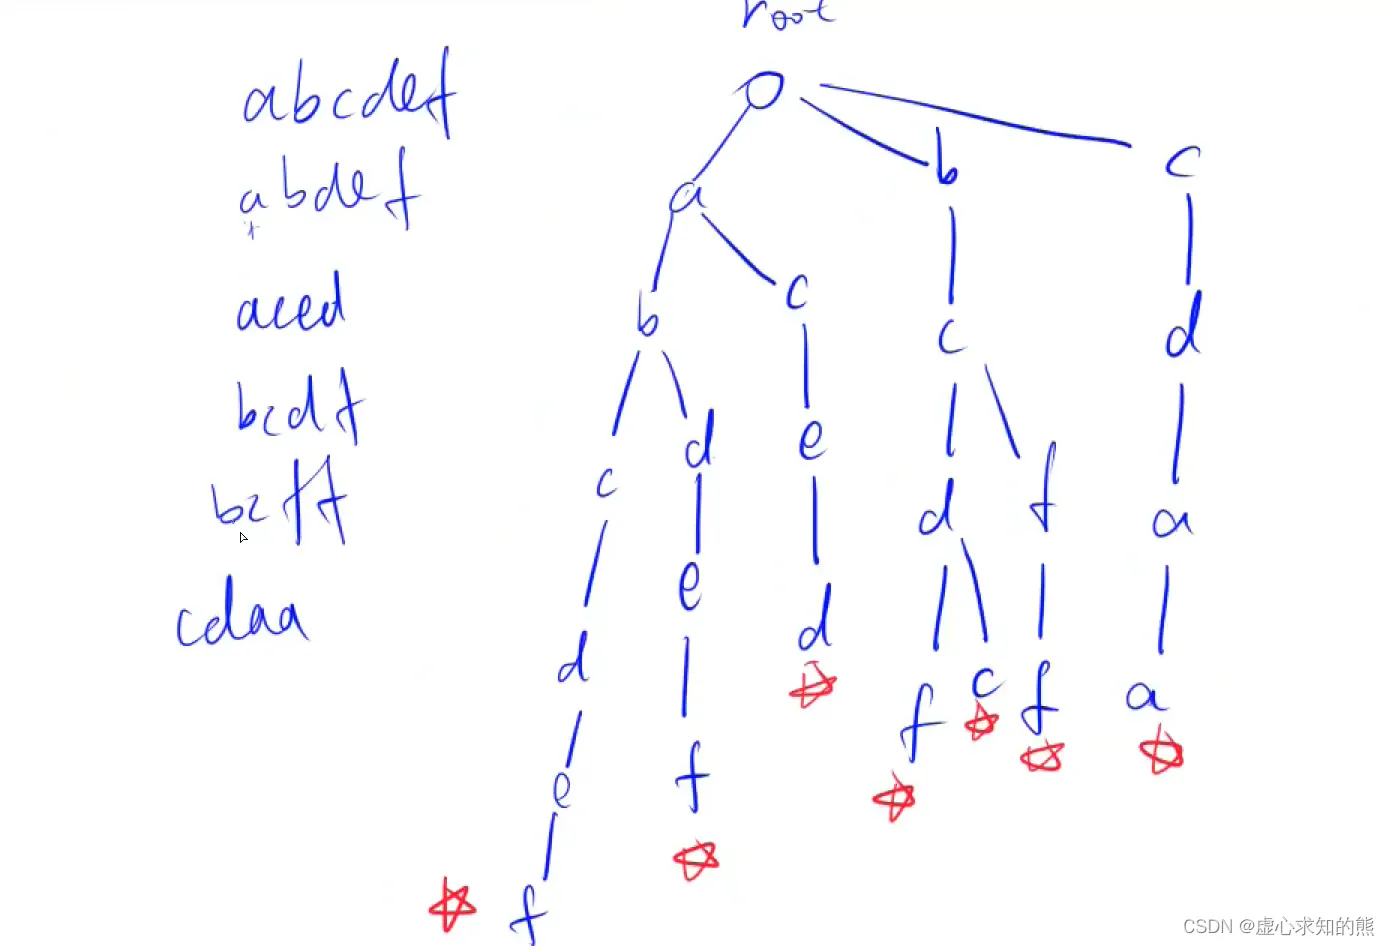 root
abcdef
abdef
aced
bcdf
bcff
cdaa
a b c
b c c d
c d e d f a
d e d f c f a
e f
f
CSDN @虚心求知的熊